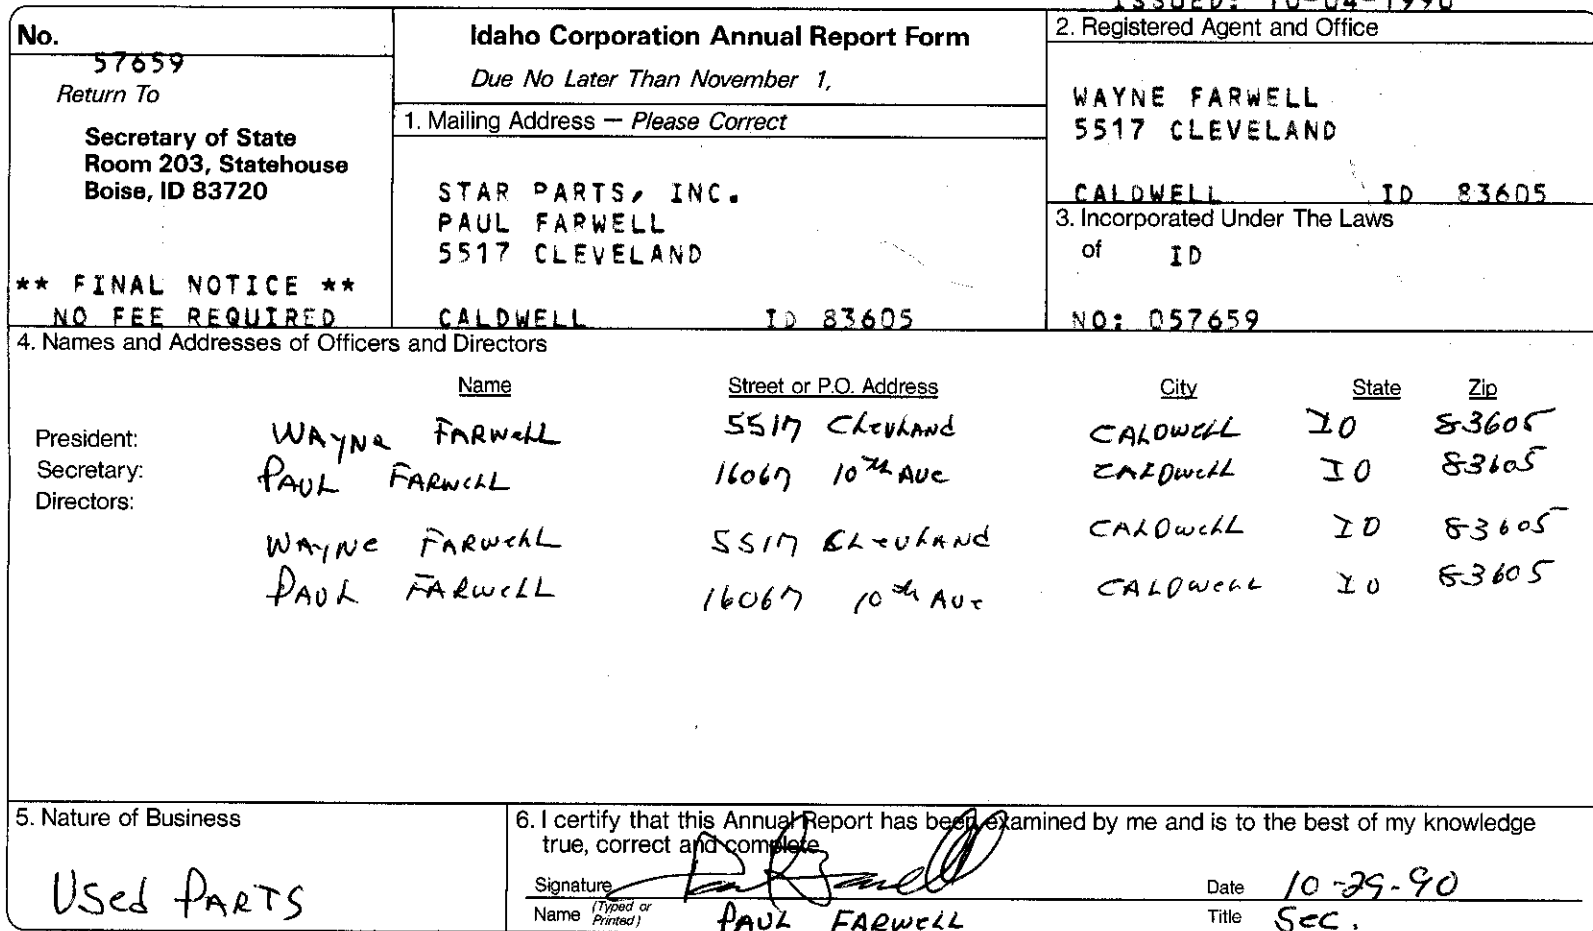 ISSUED: 10-04-1990
No.
57659
Return To
Secretary of State
Room 203, Statehouse
Boise, ID 83720
** FINAL NOTICE **
NO FEE REQUIRED
Idaho Corporation Annual Report Form
Due No Later Than November 1,
1. Mailing Address — Please Correct
STAR PARTS, INC.
PAUL FARWELL
5517 CLEVELAND
CALDWELL ID 83605
2. Registered Agent and Office
WAYNE FARWELL
5517 CLEVELAND
CALDWELL ID 83605
3. Incorporated Under The Laws
of ID
NO: 057659
4. Names and Addresses of Officers and Directors
Name Street or P.O. Address City State Zip
President: WAYNE FARWELL 5517 Clevland CALDWELL ID 83605
Secretary: PAUL FARWELL 16067 10th Ave CALDWELL ID 83605
Directors:
WAYNE FARWELL 5517 Clevland CALDWELL ID 83605
PAUL FARWELL 16067 10th Ave CALDWELL ID 83605
5. Nature of Business
Used PARTS
6. I certify that this Annual Report has been examined by me and is to the best of my knowledge
true, correct and complete.
Signature Paul Farwell Date 10-29-90
Name (Typed or Printed) PAUL FARWELL Title Sec.